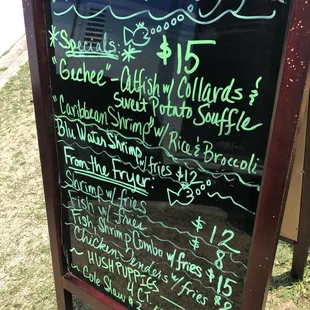 Specials: $15
"Geechee" - Catfish w/ Collards &
Sweet Potato Souffle
"Caribbean Shrimp" w/ Rice & Broccoli
Blu Water Shrimp w/ fries $12
From the Fryer:
Shrimp w/ fries $12
Fish w/ fries $8
Fish, Shrimp Combo w/ fries $15
Chicken Tenders w/ fries $8
~ HUSHPUPPIES ~
Cole Slaw $3